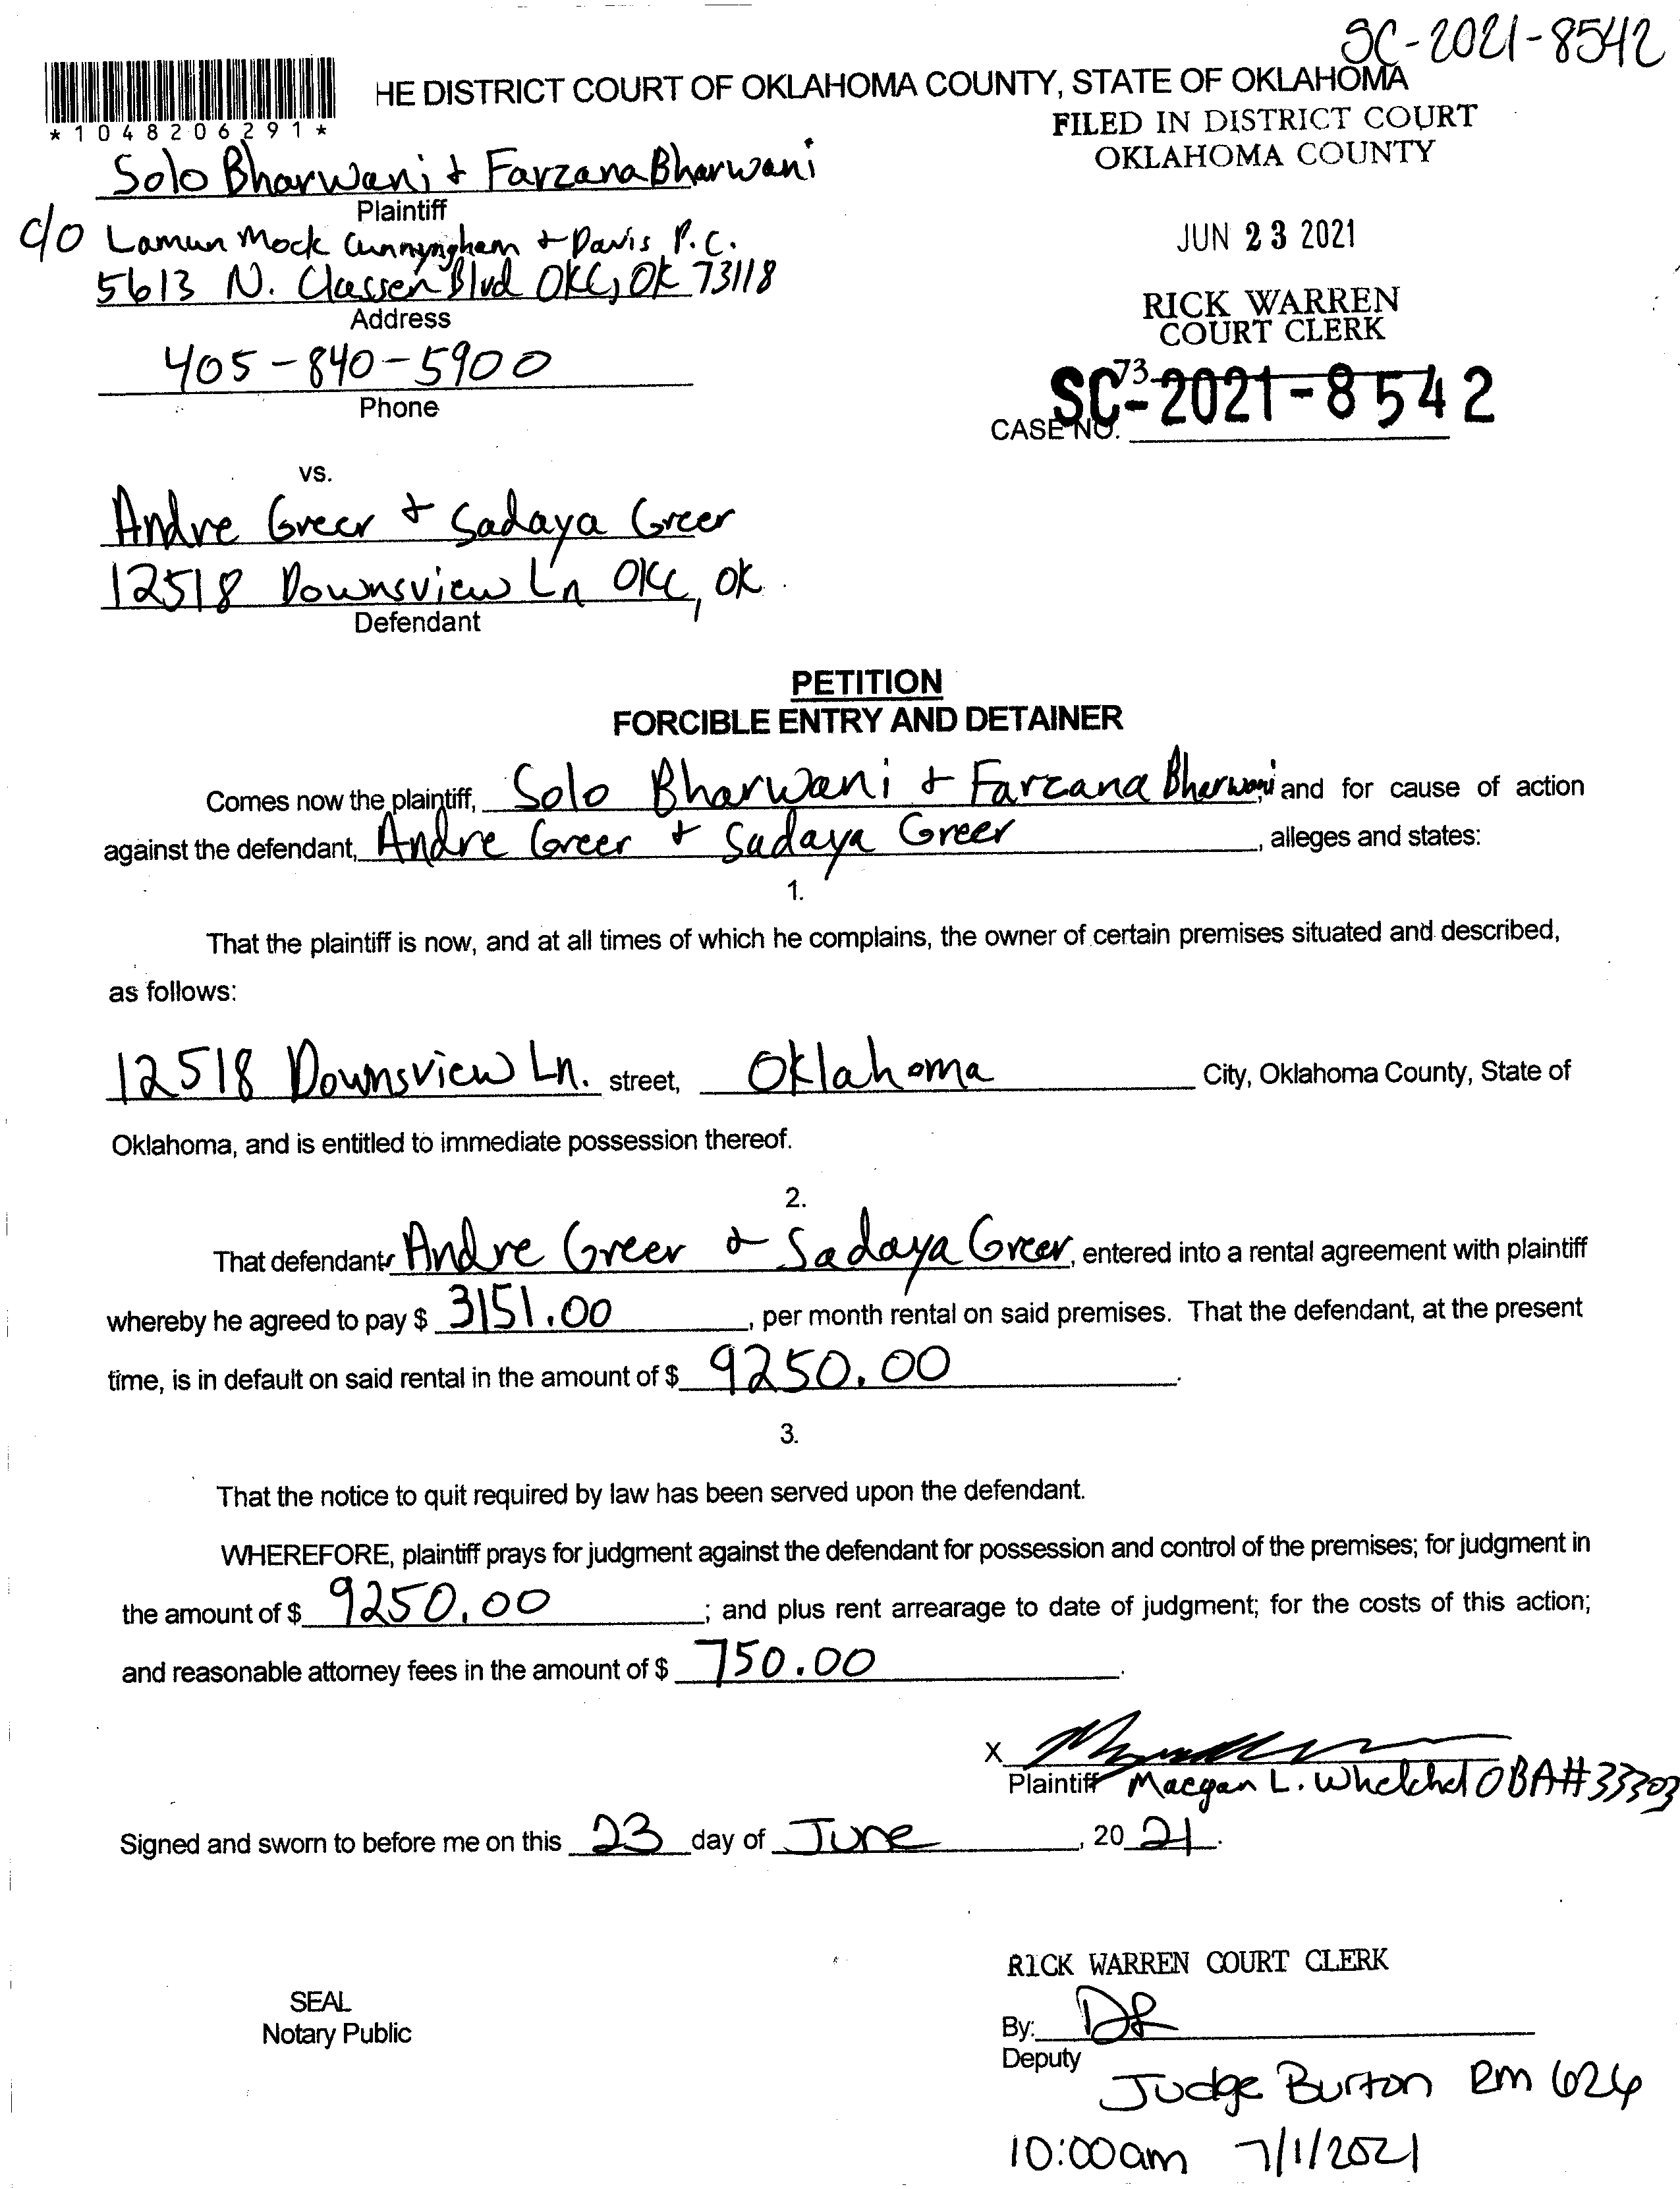 SC-2021-8542
HE DISTRICT COURT OF OKLAHOMA COUNTY, STATE OF OKLAHOMA
*1048206291*
FILED IN DISTRICT COURT
OKLAHOMA COUNTY
Solo Bharwani + Farzana Bharwani
Plaintiff
c/o Lamun Mock Cunnyngham + Davis P.C.
JUN 23 2021
5613 N. Classen Blvd OKC, OK 73118
Address
RICK WARREN
COURT CLERK
405-840-5900
Phone
73
SC-2021-8542
CASE NO.
vs.
Andre Greer + Sadaya Greer
12518 Downsview Ln OKC, OK
Defendant
PETITION
FORCIBLE ENTRY AND DETAINER
Comes now the plaintiff, Solo Bharwani + Farzana Bharwani and for cause of action
against the defendant, Andre Greer + Sadaya Greer, alleges and states:
1.
That the plaintiff is now, and at all times of which he complains, the owner of certain premises situated and described,
as follows:
12518 Downsview Ln. street, Oklahoma City, Oklahoma County, State of
Oklahoma, and is entitled to immediate possession thereof.
2.
That defendants Andre Greer + Sadaya Greer, entered into a rental agreement with plaintiff
whereby he agreed to pay $ 3151.00, per month rental on said premises. That the defendant, at the present
time, is in default on said rental in the amount of $ 9250.00.
3.
That the notice to quit required by law has been served upon the defendant.
WHEREFORE, plaintiff prays for judgment against the defendant for possession and control of the premises; for judgment in
the amount of $ 9250.00; and plus rent arrearage to date of judgment; for the costs of this action;
and reasonable attorney fees in the amount of $ 750.00.
X
Plaintiff Maegan L. Whelchel OBA# 33303
Signed and sworn to before me on this 23 day of June, 2021.
RICK WARREN COURT CLERK
SEAL
Notary Public
By: DR
Deputy
Judge Burton Rm 624
10:00am 7/1/2021